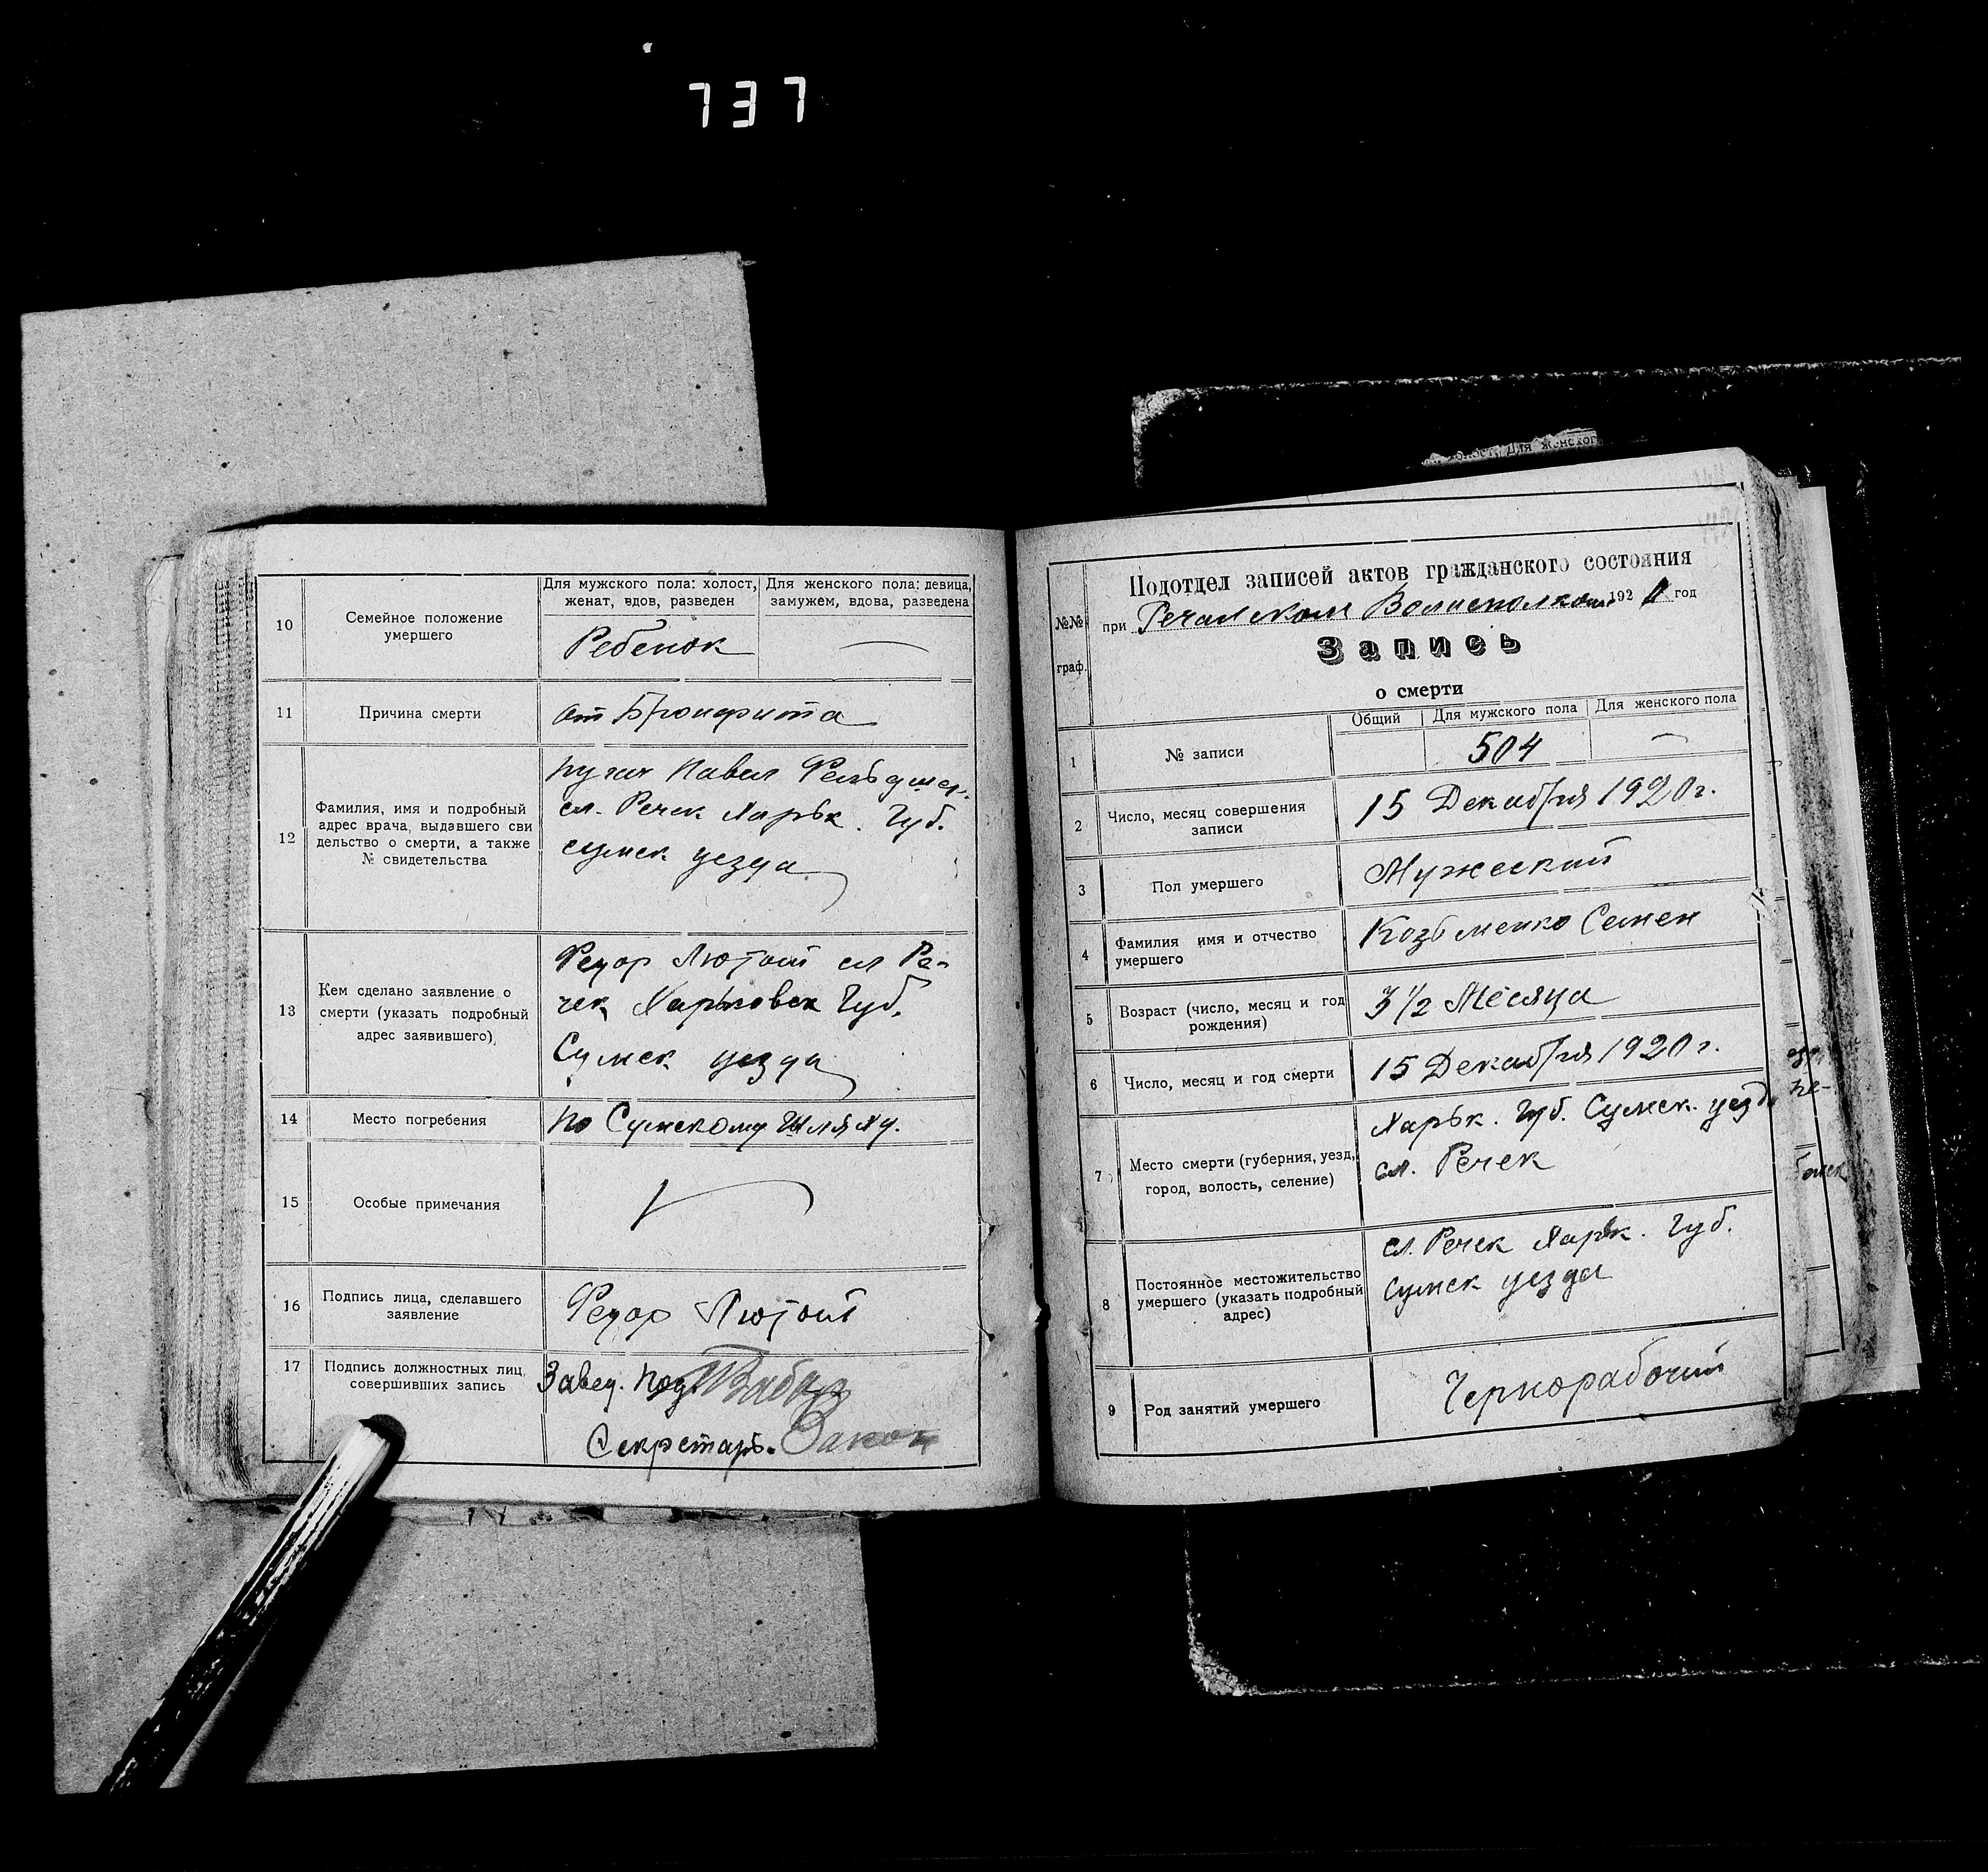 737
10
Семейное положение
умершего
Для мужского пола: холост,
женат, вдов, разведен
Для женского пола: девица,
замужем, вдова, разведена
Ребенок
—
11
Причина смерти
от Бронфита
12
Фамилия, имя и подробный
адрес врача, выдавшего сви
дельство о смерти, а также
№ свидетельства
Пугач Павел Фельдшер.
сл. Речек Харьк. Губ.
сумск уезда
13
Кем сделано заявление о
смерти (указать подробный
адрес заявившего)
Федор Лютой сл Ре-
чек Харьковск Губ.
Сумск уезда
14
Место погребения
по Сумскому Шляху.
15
Особые примечания
16
Подпись лица, сделавшего
заявление
Федор Лютой
17
Подпись должностных лиц,
совершивших запись
Завед. Под.
Секретарь.
Для женског
№№
граф.
Подотдел записей актов гражданского состояния
при Речанском Волисполкоме 1920 год
Запись
о смерти
Общий
Для мужского пола
Для женского пола
1
№ записи
504
—
2
Число, месяц совершения
записи
15 Декабря 1920 г.
3
Пол умершего
Мужеский
4
Фамилия имя и отчество
умершего
Козьменко Семен
5
Возраст (число, месяц и год
рождения)
3 1/2 Месяца
6
Число, месяц и год смерти
15 Декабря 1920 г.
7
Место смерти (губерния, уезд,
город, волость, селение)
Харьк. Губ. Сумск. уезд.
сл. Речек
8
Постоянное местожительство
умершего (указать подробный
адрес)
сл. Речек Харьк. Губ.
Сумск уезда
9
Род занятий умершего
Чернорабочий